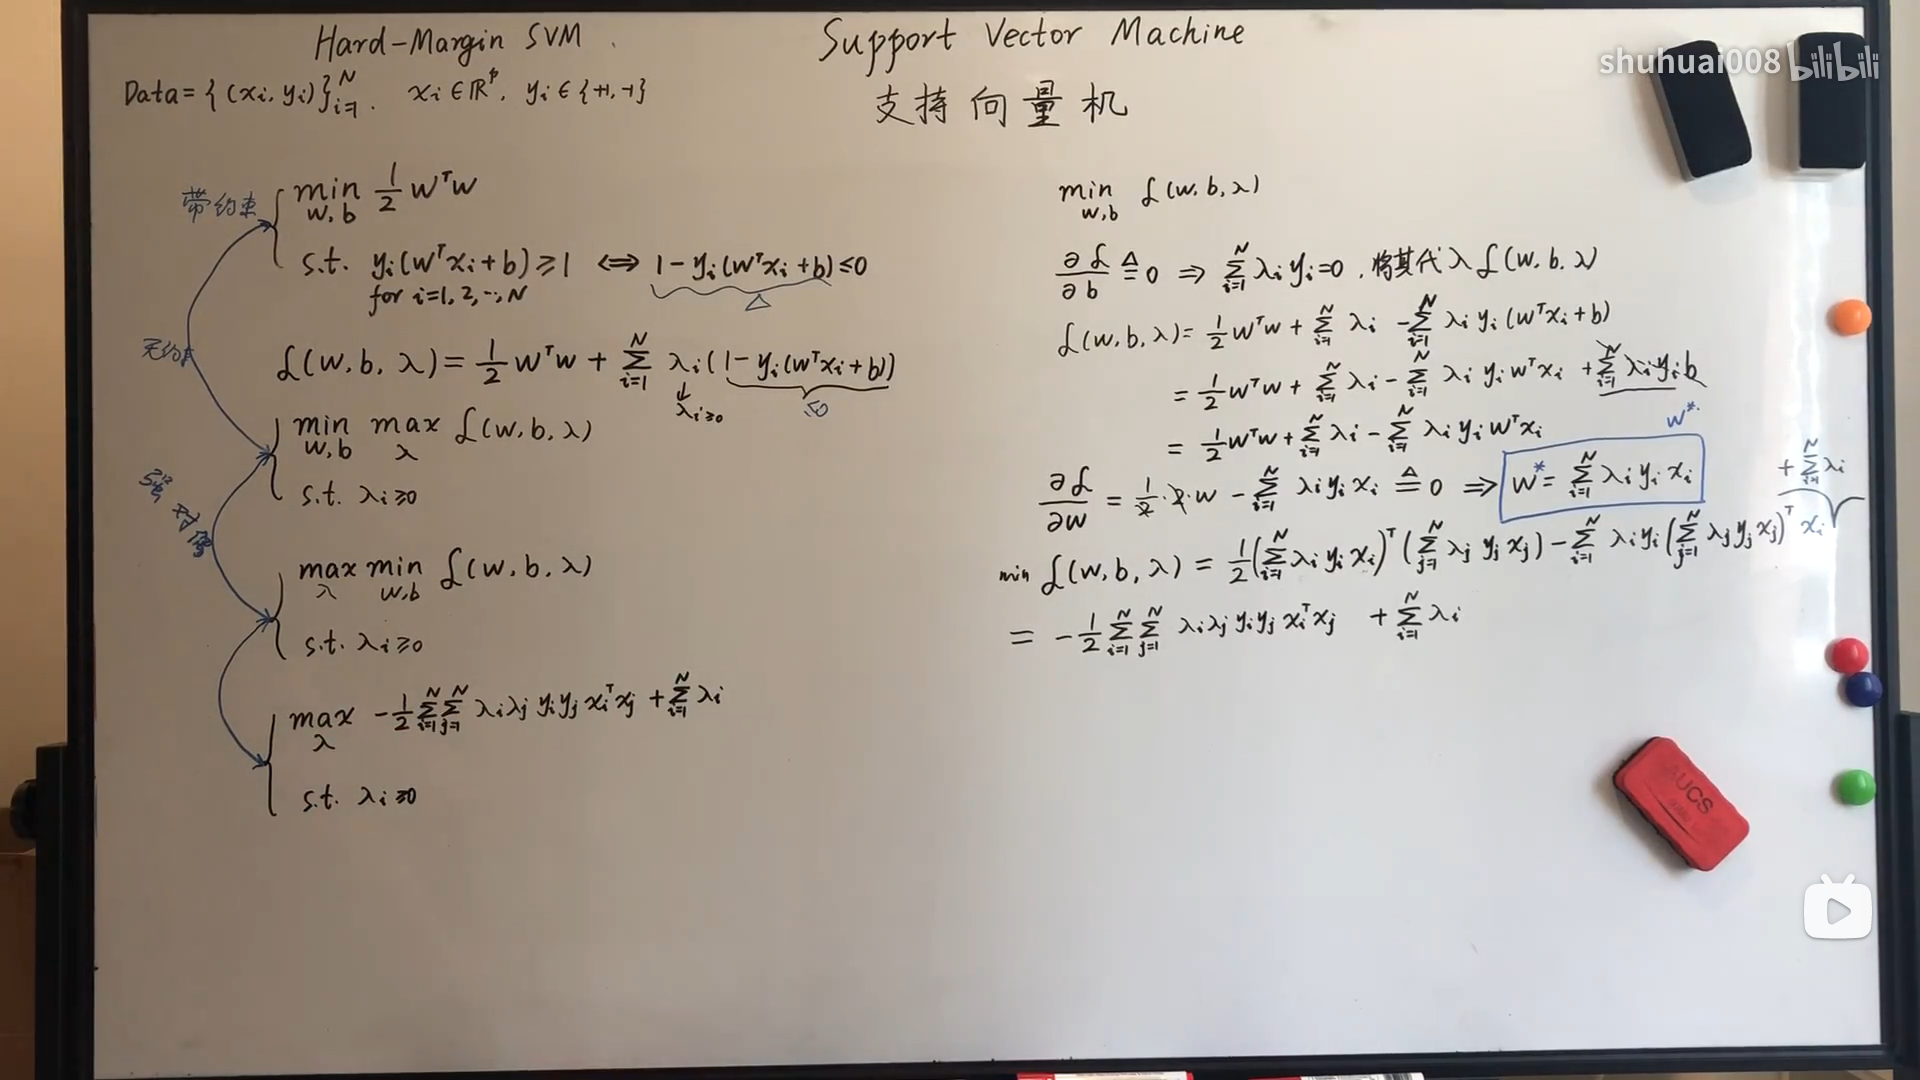 Hard-Margin SVM
Support Vector Machine
支持向量机
shuhuai008 bilibili
Data = {(xi, yi)}_{i=1}^N, xi ∈ ℝ^p, yi ∈ {+1, -1}
带约束
min_{w,b} 1/2 w^T w
s.t. yi(w^T xi + b) ≥ 1 ⇔ 1 - yi(w^T xi + b) ≤ 0
for i=1, 2, ..., N
△
无约束
ℒ(w, b, λ) = 1/2 w^T w + ∑_{i=1}^N λi (1 - yi(w^T xi + b))
λi ≥ 0
≤0
min_{w,b} max_λ ℒ(w, b, λ)
s.t. λi ≥ 0
强对偶
max_λ min_{w,b} ℒ(w, b, λ)
s.t. λi ≥ 0
max_λ - 1/2 ∑_{i=1}^N ∑_{j=1}^N λi λj yi yj xi^T xj + ∑_{i=1}^N λi
s.t. λi ≥ 0
min_{w,b} ℒ(w, b, λ)
∂ℒ/∂b ≜ 0 ⇒ ∑_{i=1}^N λi yi = 0, 将其代入 ℒ(w, b, λ)
ℒ(w, b, λ) = 1/2 w^T w + ∑_{i=1}^N λi - ∑_{i=1}^N λi yi (w^T xi + b)
= 1/2 w^T w + ∑_{i=1}^N λi - ∑_{i=1}^N λi yi w^T xi + ∑_{i=1}^N λi yi b
= 1/2 w^T w + ∑_{i=1}^N λi - ∑_{i=1}^N λi yi w^T xi
w*
∂ℒ/∂w = 1/2 · 2 · w - ∑_{i=1}^N λi yi xi ≜ 0 ⇒ w* = ∑_{i=1}^N λi yi xi
+ ∑_{i=1}^N λi
min ℒ(w, b, λ) = 1/2 (∑_{i=1}^N λi yi xi)^T (∑_{j=1}^N λj yj xj) - ∑_{i=1}^N λi yi (∑_{j=1}^N λj yj xj)^T xi
= - 1/2 ∑_{i=1}^N ∑_{j=1}^N λi λj yi yj xi^T xj + ∑_{i=1}^N λi
AUCS